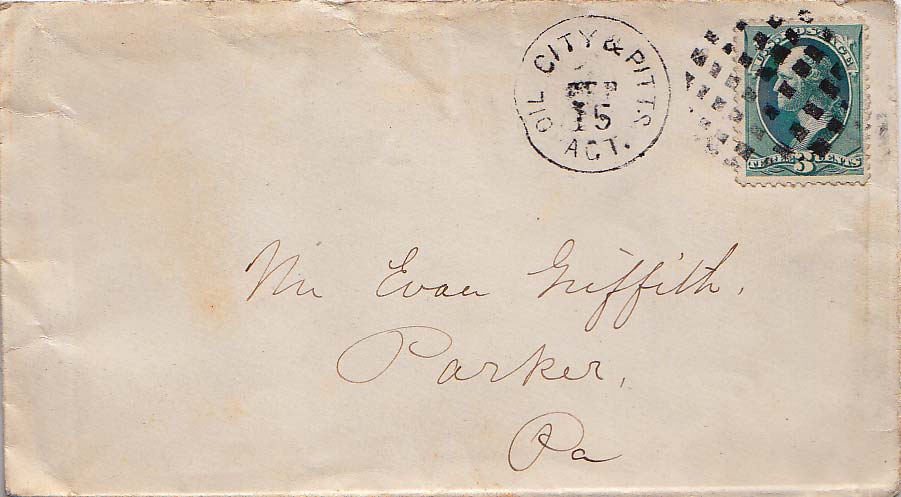 OIL CITY & PITTS.
SEP
15
AGT.
U.S. POSTAGE
THREE 3 CENTS
Mr Evan Griffith,
Parker,
Pa